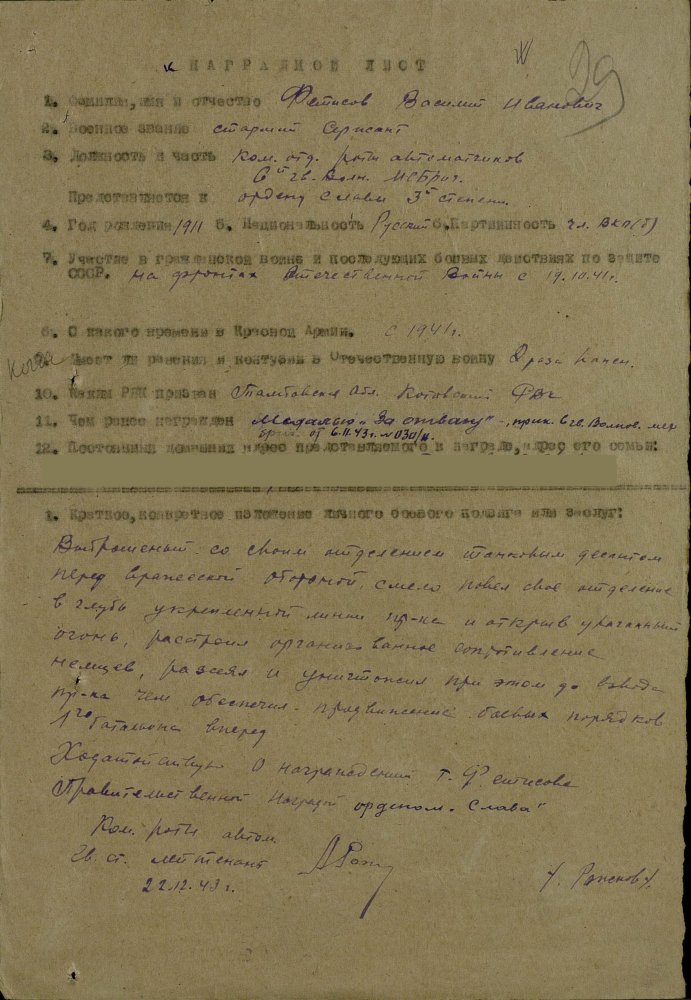 29
НАГРАДНОЙ ЛИСТ
1. Фамилия, имя и отчество Фетисов Василий Иванович
2. Военное звание старший Сержант
3. Должность и часть ком. отд. роты автоматчиков
6й гв. Волн. МСБриг.
Представляется к ордену Славы 3й степени.
4. Год рождения 1911 5. Национальность Русский 6. Партийность чл. ВКП(б)
7. Участие в гражданской войне и последующих боевых действиях по защите
СССР. на фронтах Отечественной Войны с 19.10.41г.
8. С какого времени в Красной Армии. с 1941г.
Когда
9. Имеет ли ранения и контузии в Отечественную войну 2 раза
10. Каким РВК призван Тамбовская обл. Котовский РВК
11. Чем ранее награжден Медалью „За отвагу" прик. 6 гв. Волнов. мех
бриг. от 6.11.43г. № 030/н.
12. Постоянный домашний адрес представляемого к награде, адрес его семьи:
1. Краткое, конкретное изложение личного боевого подвига или заслуг:
Выброшеный со своим отделением танковым десантом
перед вражеской обороной, смело повел свое отделение
в глубь укрепленной линии пр-ка и открыв ураганный
огонь, расстроил организованное сопротивление
немцев, рассеял и уничтожил при этом до взвода
пр-ка чем обеспечил продвижение боевых порядков
1го батальона вперед
Ходатайствую о награждении т. Фетисова
Правительственной наградой орденом „Слава"
Ком. роты автом.
гв. ст. лейтенант
22.12.43г.